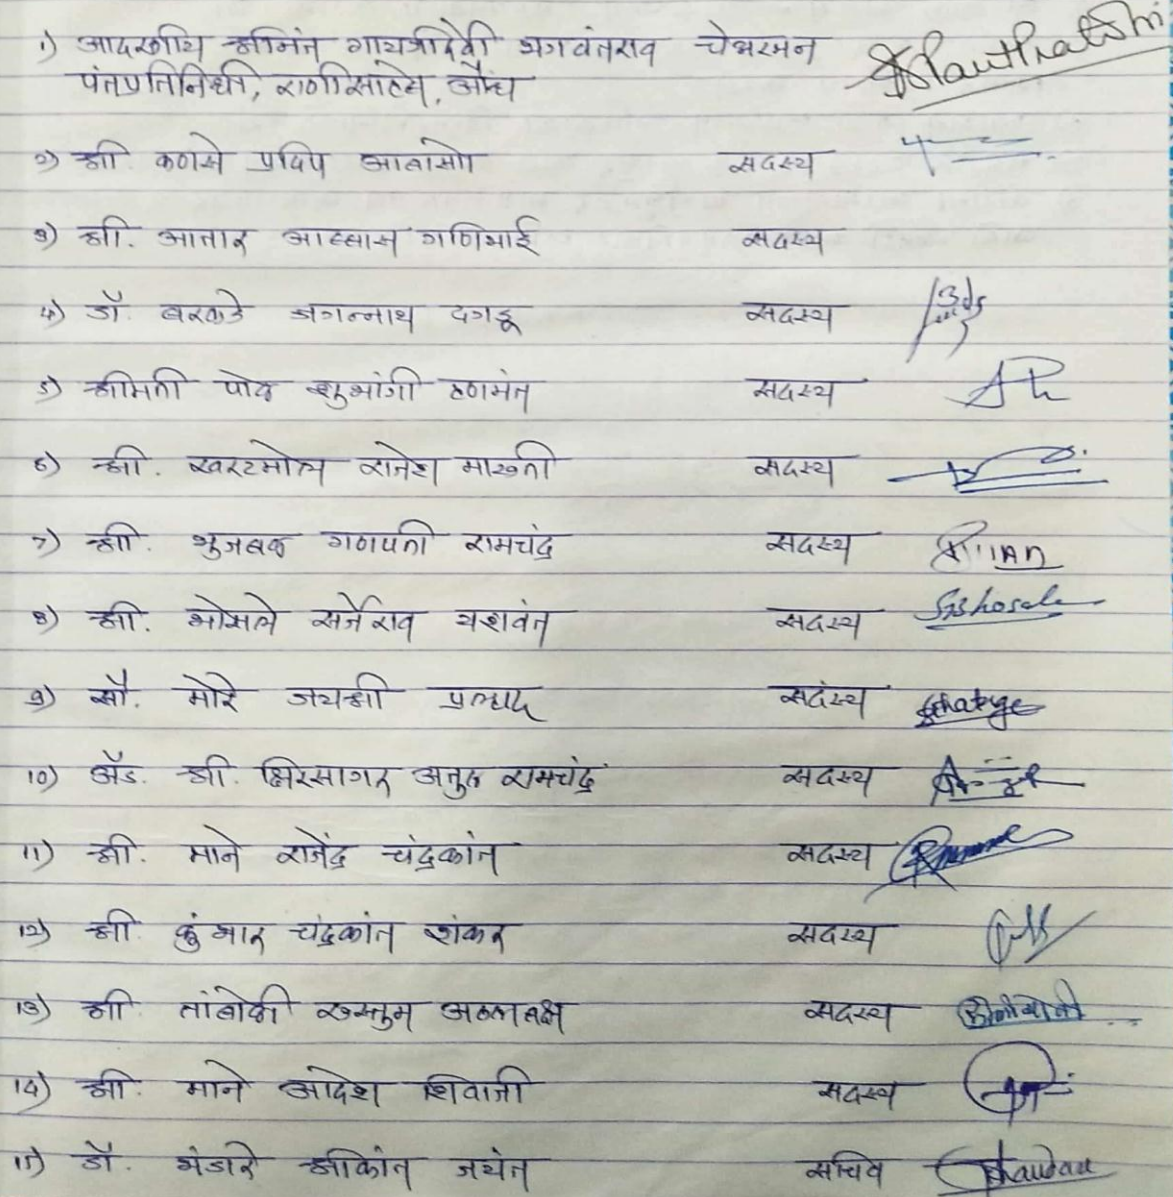 १) आदरणीय श्रीमंत गायत्रीदेवी भगवंतराव चेअरमन
पंतप्रतिनिधी, राणीसाहेब, औंध
२) श्री. कणसे प्रदिप आबासो सदस्य
३) श्री. आतार अब्बास गणिभाई सदस्य
४) डॉ. बरकडे जगन्नाथ दगडू सदस्य
५) श्रीमती पोळ शुभांगी हणमंत सदस्य
६) श्री. खरटमोल राजेश मारुती सदस्य
७) श्री. भुजबळ गणपती रामचंद्र सदस्य
८) श्री. भोसले सर्जेराव यशवंत सदस्य Bhosale
९) सौ. मोरे जयश्री प्रल्हाद सदस्य
१०) अ‍ॅड. श्री. क्षिरसागर अतुल रामचंद्र सदस्य
११) श्री. माने राजेंद्र चंद्रकांत सदस्य
१२) श्री. कुंभार चंद्रकांत शंकर सदस्य
१३) श्री तांबोळी रुस्तुम सदस्य
१४) श्री. माने आदेश शिवाजी सदस्य
१५) डॉ. भंडारे श्रीकांत जयंत सचिव